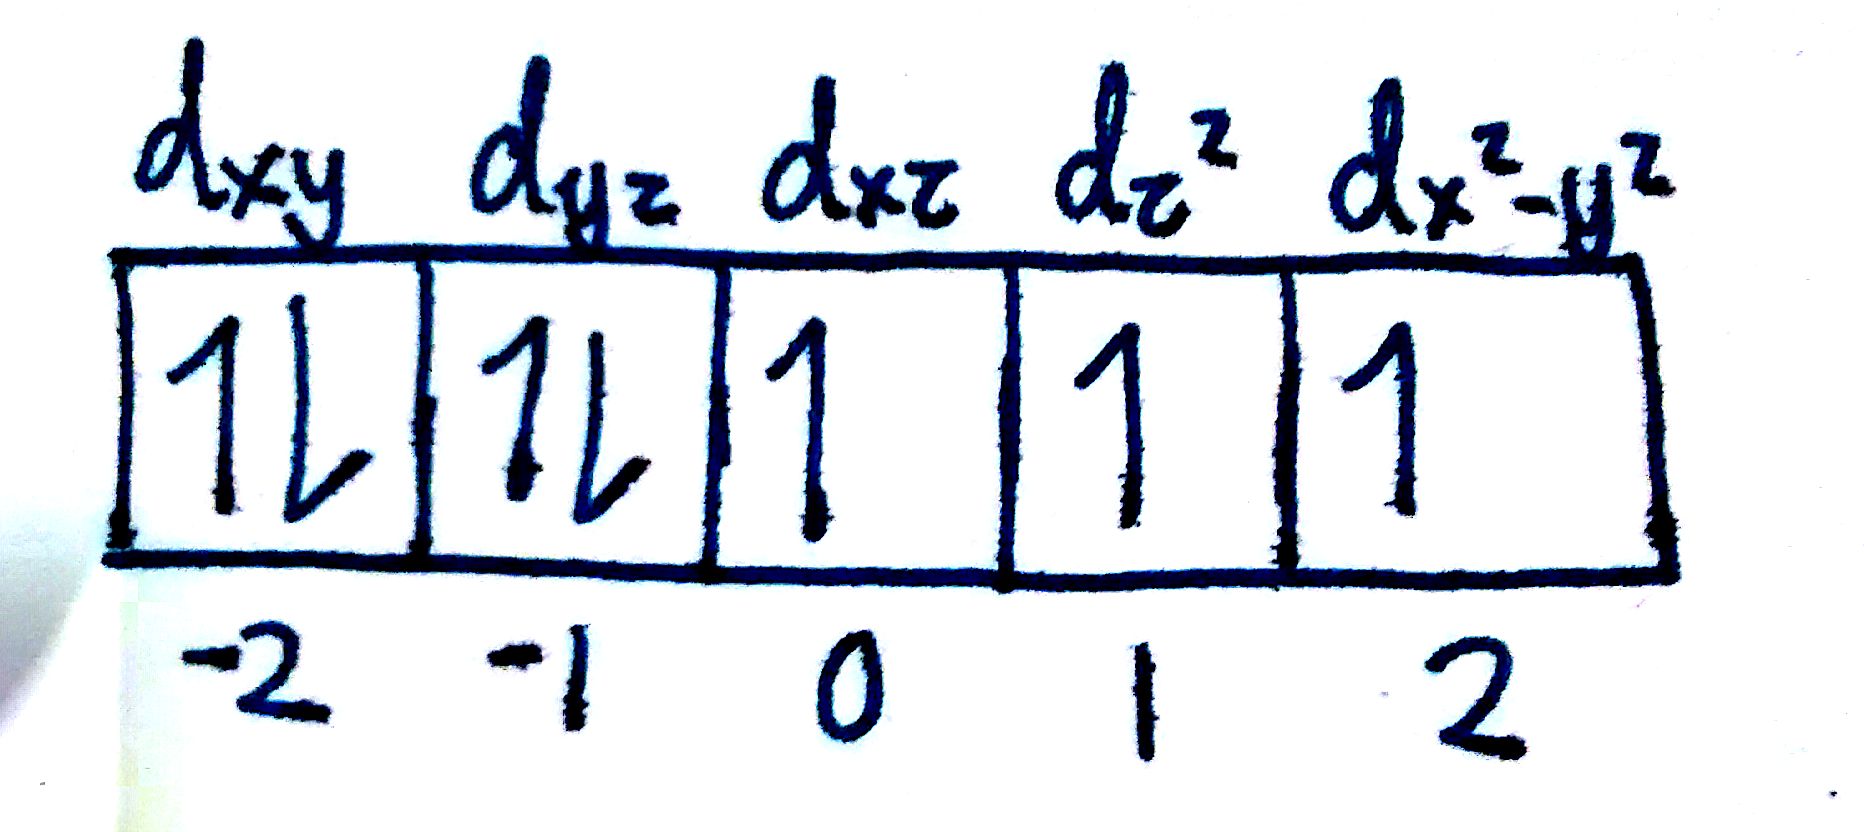 dxy dyz dxz dz² dx²-y²
↿⇂ ↿⇂ ↿ ↿ ↿
-2 -1 0 1 2